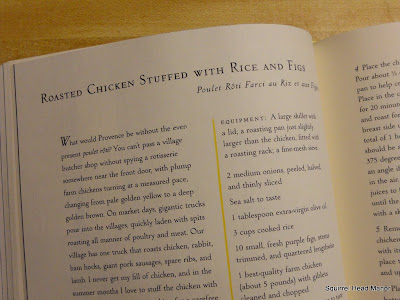 ROASTED CHICKEN STUFFED WITH RICE AND FIGS
Poulet Rôti Farci au Riz et aux Figs
What would Provence be without the ever
present poulet rôti? You can't pass a village
butcher shop without spying a rotisserie
somewhere near the front door, with plump
farm chickens turning at a measured pace,
changing from pale golden yellow to a deep
golden brown. On market days, gigantic trucks
pour into the villages, quickly laden with spits
roasting all manner of poultry and meat. Our
village has one truck that roasts chicken, rabbit,
ham hocks, giant pork sausages, spare ribs, and
lamb. I never get my fill of chicken, and in the
summer months I love to stuff the chicken with
EQUIPMENT: A large skillet with
a lid, a roasting pan just slightly
larger than the chicken, fitted with
a roasting rack, a fine-mesh sieve
2 medium onions, peeled, halved,
and thinly sliced
Sea salt to taste
1 tablespoon extra-virgin olive oil
3 cups cooked rice
10 small, fresh purple figs, stems
trimmed, and quartered lengthwise
1 best-quality farm chicken
(about 5 pounds) with giblets
cleaned and chopped
4 Place the ch
Pour about ¼
pan to help cr
Place in the c
for 20 minute
and roast for
breast side u
total of 1 h
should be a
375 degree
an angle
in the air,
juices to
until you
with a s
5 Rem
chicken
with it
place
up and